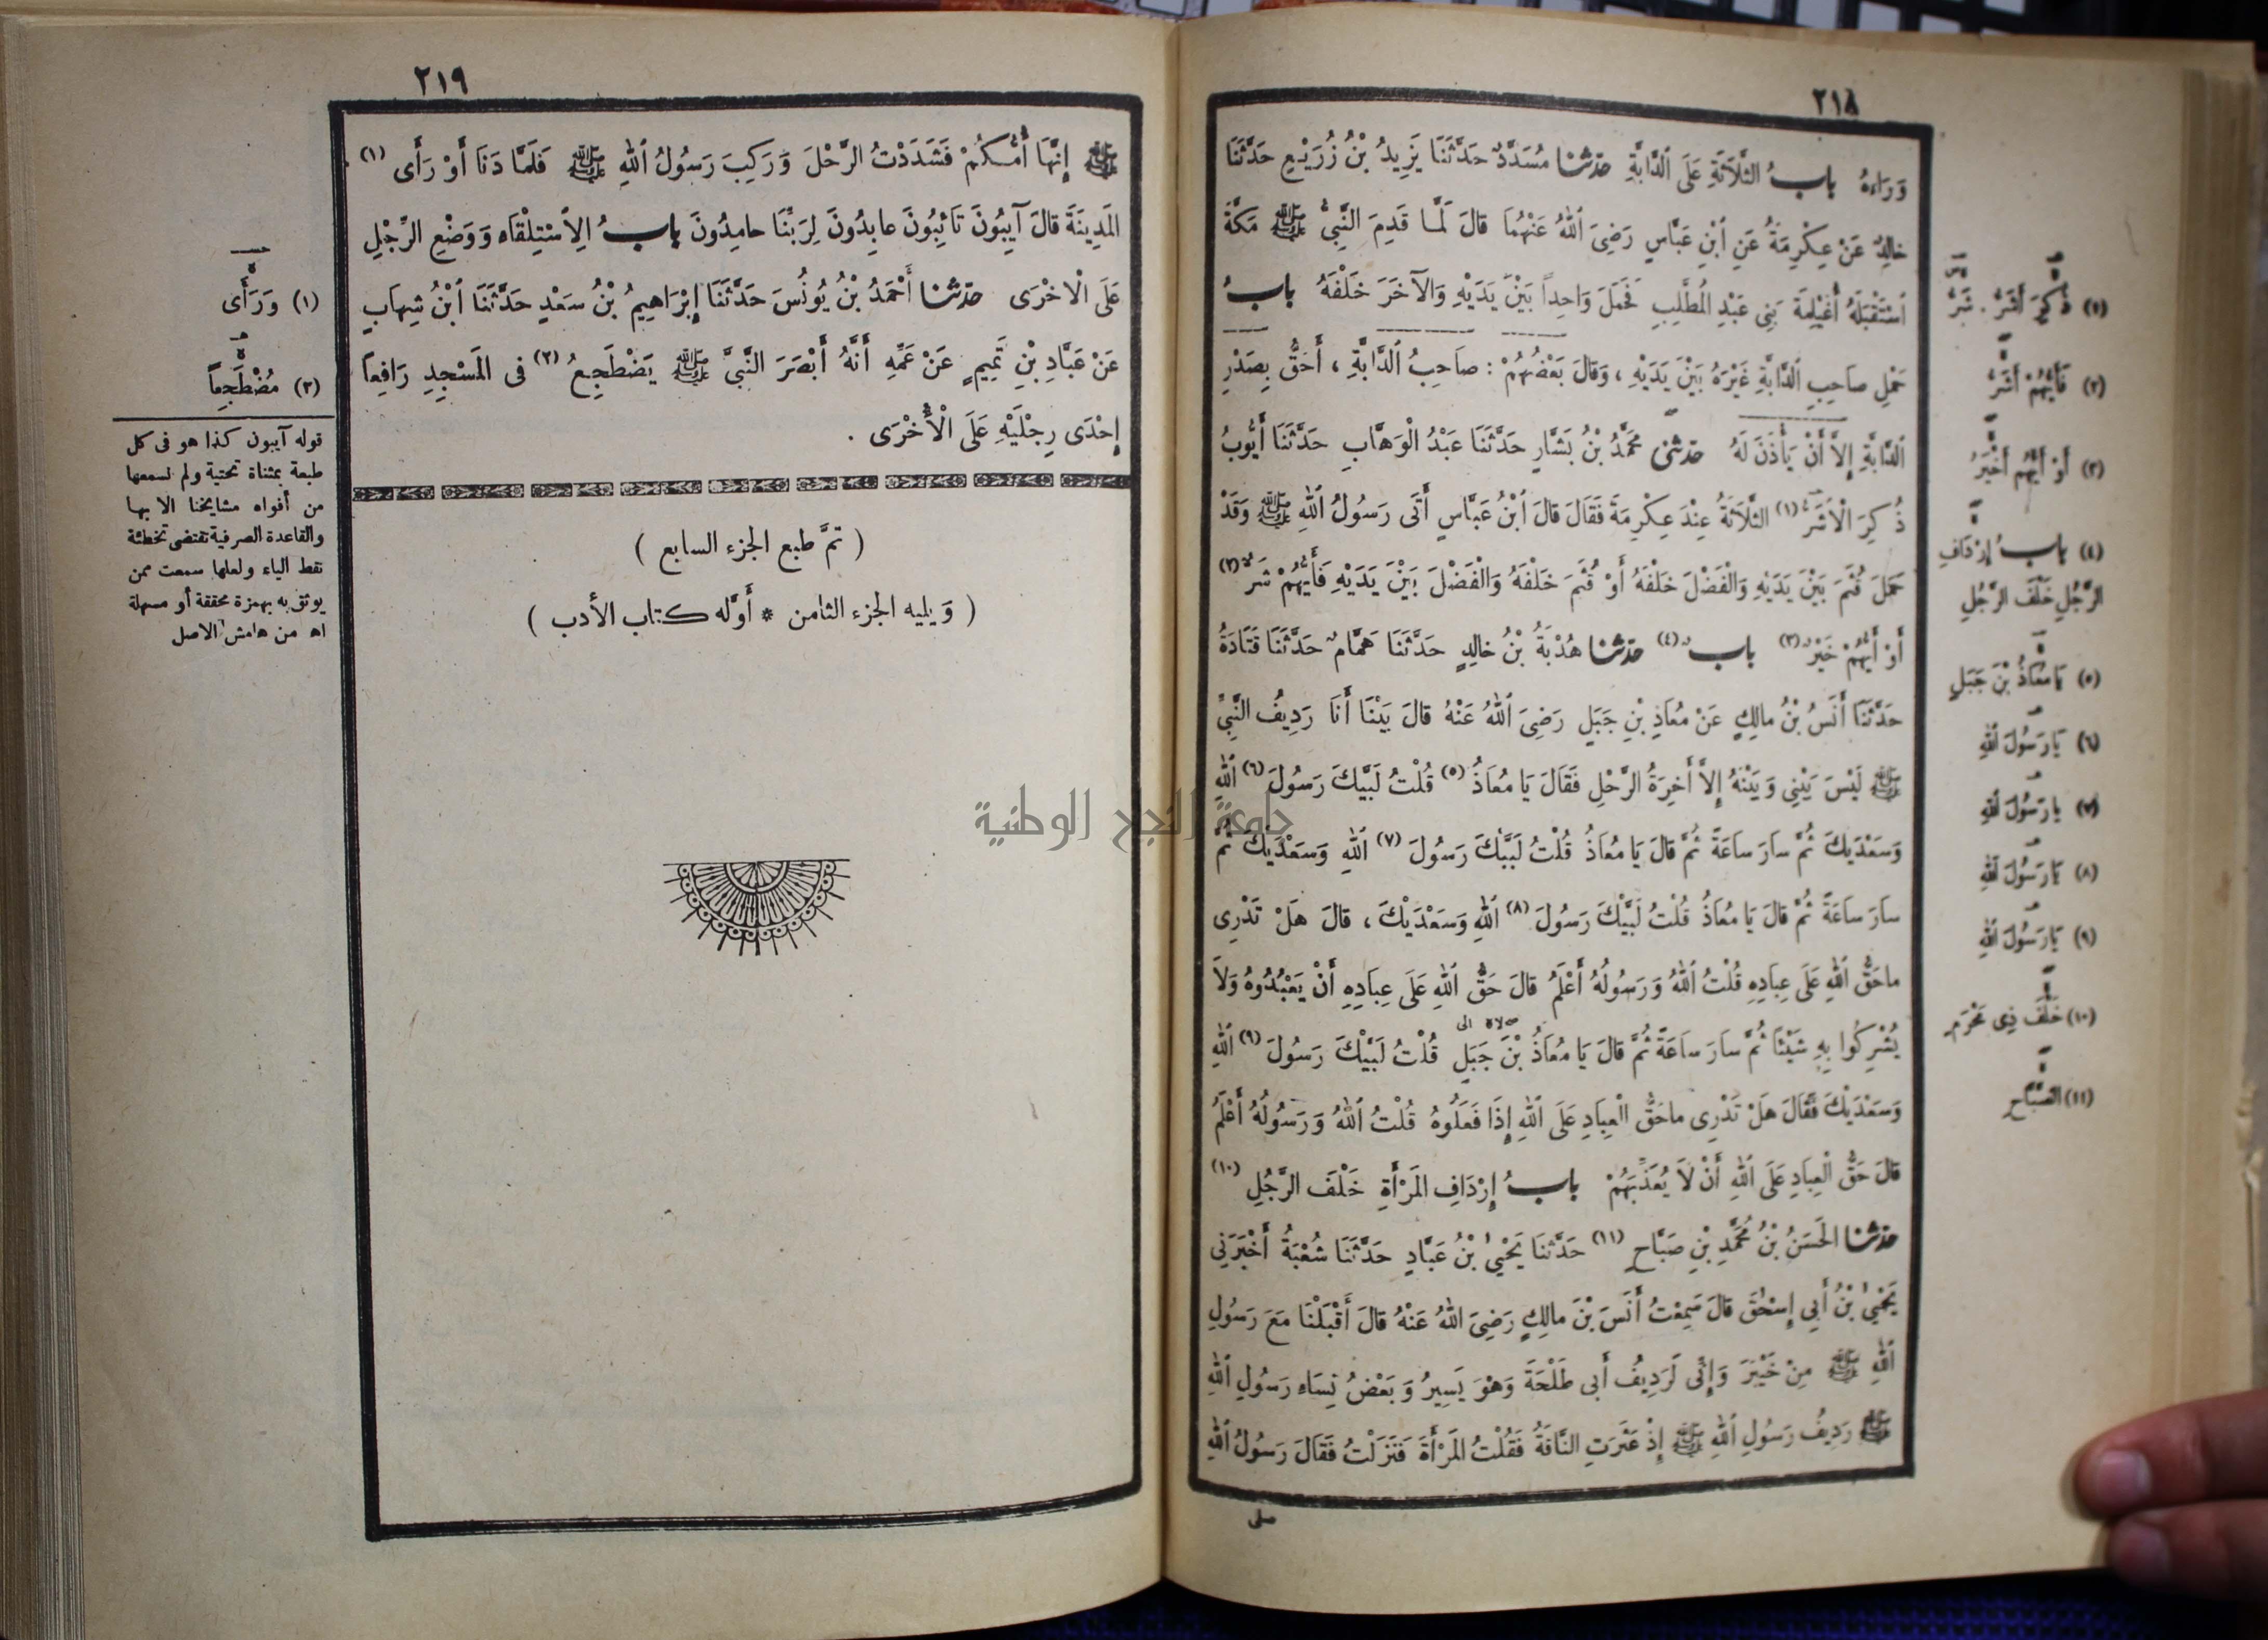 ٢١٨
وَرَاءَهُ بابُ الثَّلَاثَةِ عَلَى الدَّابَّةِ حدثنا مُسَدَّدٌ حَدَّثَنَا يَزِيدُ بْنُ زُرَيْعٍ حَدَّثَنَا
خالِدٌ عَنْ عِكْرِمَةَ عَنِ ابْنِ عَبَّاسٍ رَضِيَ اللهُ عَنْهُمَا قالَ لَمَّا قَدِمَ النَّبِيُّ ﷺ مَكَّةَ
اسْتَقْبَلَهُ أُغَيْلِمَةُ بَنِي عَبْدِ الْمُطَّلِبِ فَحَمَلَ وَاحِداً بَيْنَ يَدَيْهِ وَالآخَرَ خَلْفَهُ بابُ
حَمْلِ صاحِبِ الدَّابَّةِ غَيْرَهُ بَيْنَ يَدَيْهِ ، وَقالَ بَعْضُهُمْ : صاحِبُ الدَّابَّةِ ، أَحَقُّ بِصَدْرِ
الدَّابَّةِ إِلاَّ أَنْ يَأْذَنَ لَهُ حدثني مُحَمَّدُ بْنُ بَشَّارٍ حَدَّثَنَا عَبْدُ الْوَهَّابِ حَدَّثَنَا أَيُّوبُ
ذُكِرَ الْأَشَرُّ (١) الثَّلَاثَةُ عِنْدَ عِكْرِمَةَ فَقَالَ قالَ ابْنُ عَبَّاسٍ أَتَى رَسُولُ اللهِ ﷺ وَقَدْ
حَمَلَ قُثَمَ بَيْنَ يَدَيْهِ وَالْفَضْلَ خَلْفَهُ أَوْ قُثَمَ خَلْفَهُ وَالْفَضْلَ بَيْنَ يَدَيْهِ فَأَيُّهُمْ شَرٌّ (٢)
أَوْ أَيُّهُمْ خَيْرٌ (٣) بابٌ (٤) حدثنا هُدْبَةُ بْنُ خالِدٍ حَدَّثَنَا هَمَّامٌ حَدَّثَنَا قَتَادَةُ
حَدَّثَنَا أَنَسُ بْنُ مالِكٍ عَنْ مُعَاذِ بْنِ جَبَلٍ رَضِيَ اللهُ عَنْهُ قالَ بَيْنَا أَنَا رَدِيفُ النَّبِيِّ
ﷺ لَيْسَ بَيْنِي وَبَيْنَهُ إِلاَّ أَخِرَةُ الرَّحْلِ فَقَالَ يَا مُعَاذُ (٥) قُلْتُ لَبَّيْكَ رَسُولَ (٦) اللهِ
وَسَعْدَيْكَ ثُمَّ سارَ ساعَةً ثُمَّ قالَ يَا مُعَاذُ قُلْتُ لَبَّيْكَ رَسُولَ (٧) اللهِ وَسَعْدَيْكَ ثُمَّ
سارَ ساعَةً ثُمَّ قالَ يَا مُعَاذُ قُلْتُ لَبَّيْكَ رَسُولَ (٨) اللهِ وَسَعْدَيْكَ ، قالَ هَلْ تَدْرِي
ما حَقُّ اللهِ عَلَى عِبَادِهِ قُلْتُ اللهُ وَرَسُولُهُ أَعْلَمُ قالَ حَقُّ اللهِ عَلَى عِبَادِهِ أَنْ يَعْبُدُوهُ وَلاَ
يُشْرِكُوا بِهِ شَيْئًا ثُمَّ سارَ ساعَةً ثُمَّ قالَ يَا مُعَاذُ بْنَ جَبَلٍ قُلْتُ لَبَّيْكَ رَسُولَ (٩) اللهِ
وَسَعْدَيْكَ فَقَالَ هَلْ تَدْرِي ما حَقُّ الْعِبَادِ عَلَى اللهِ إِذَا فَعَلُوهُ قُلْتُ اللهُ وَرَسُولُهُ أَعْلَمُ
قالَ حَقُّ الْعِبَادِ عَلَى اللهِ أَنْ لاَ يُعَذِّبَهُمْ بابُ إِرْدَافِ المَرْأَةِ خَلْفَ الرَّجُلِ (١٠)
حدثنا الحَسَنُ بْنُ مُحَمَّدِ بْنِ صَبَّاحٍ (١١) حَدَّثَنَا يَحْيىُ بْنُ عَبَّادٍ حَدَّثَنَا شُعْبَةُ أَخْبَرَنِي
يَحْيىُ بْنُ أَبِي إِسْحٰقَ قالَ سَمِعْتُ أَنَسَ بْنَ مالِكٍ رَضِيَ اللهُ عَنْهُ قالَ أَقْبَلْنَا مَعَ رَسُولِ
اللهِ ﷺ مِنْ خَيْبَرَ وَإِنِّى لَرَدِيفُ أَبِى طَلْحَةَ وَهُوَ يَسِيرُ وَبَعْضُ نِسَاءِ رَسُولِ اللهِ
ﷺ رَدِيفُ رَسُولِ اللهِ ﷺ إِذْ عَثَرَتِ النَّاقَةُ فَقُلْتُ المَرْأَةَ فَنَزَلْتُ فَقَالَ رَسُولُ اللهِ
صلى
(١) ذُكِرَ أَشَرُّ . شَرُّ
(٢) فَأَيُّهُمْ أَشَرُّ
(٣) أَوْ أَيُّهُمْ أَخْيَرُ
(٤) بابُ إِرْدَافِ
الرَّجُلِ خَلْفَ الرَّجُلِ
(٥) يَا مُعَاذُ بْنَ جَبَلٍ
(٦) يَا رَسُولَ اللهِ
(٧) يا رَسُولَ اللهِ
(٨) يَا رَسُولَ اللهِ
(٩) يَا رَسُولَ اللهِ
(١٠) خَلْفَ ذِي مَحْرَمٍ
(١١) الصَّبَّاحِ
٢١٩
ﷺ إِنَّهَا أُمُّكُمْ فَشَدَدْتُ الرَّحْلَ وَرَكِبَ رَسُولُ اللهِ ﷺ فَلَمَّا دَنَا أَوْ رَأَى (١)
المَدِينَةَ قالَ آيِبُونَ تَائِبُونَ عابِدُونَ لِرَبِّنَا حامِدُونَ بابُ الِاسْتِلْقَاءِ وَوَضْعِ الرِّجْلِ
عَلَى الْأُخْرَى حدثنا أَحْمَدُ بْنُ يُونُسَ حَدَّثَنَا إِبْرَاهِيمُ بْنُ سَعْدٍ حَدَّثَنَا ابْنُ شِهابٍ
عَنْ عَبَّادِ بْنِ تَمِيمٍ عَنْ عَمِّهِ أَنَّهُ أَبْصَرَ النَّبِيَّ ﷺ يَضْطَجِعُ (٢) فى المَسْجِدِ رَافِعاً
إِحْدَى رِجْلَيْهِ عَلَى الْأُخْرَى .
( تمَّ طبع الجزء السابع )
( وَيليه الجزء الثامن * أَوَّله كتاب الأدب )
(١) وَرَأَى
(٢) مُضْطَجِعاً
قوله آيبون كذا هو فى كل
طبعة بمثناة تحتية ولم نسمعها
من أفواه مشايخنا الا بها
والقاعدة الصرفية تقتضى تخطئة
نقط الياء ولعلها سمعت ممن
يوثق به بهمزة محققة أو مسهلة
اه من هامش الاصل
جامعة النجاح الوطنية